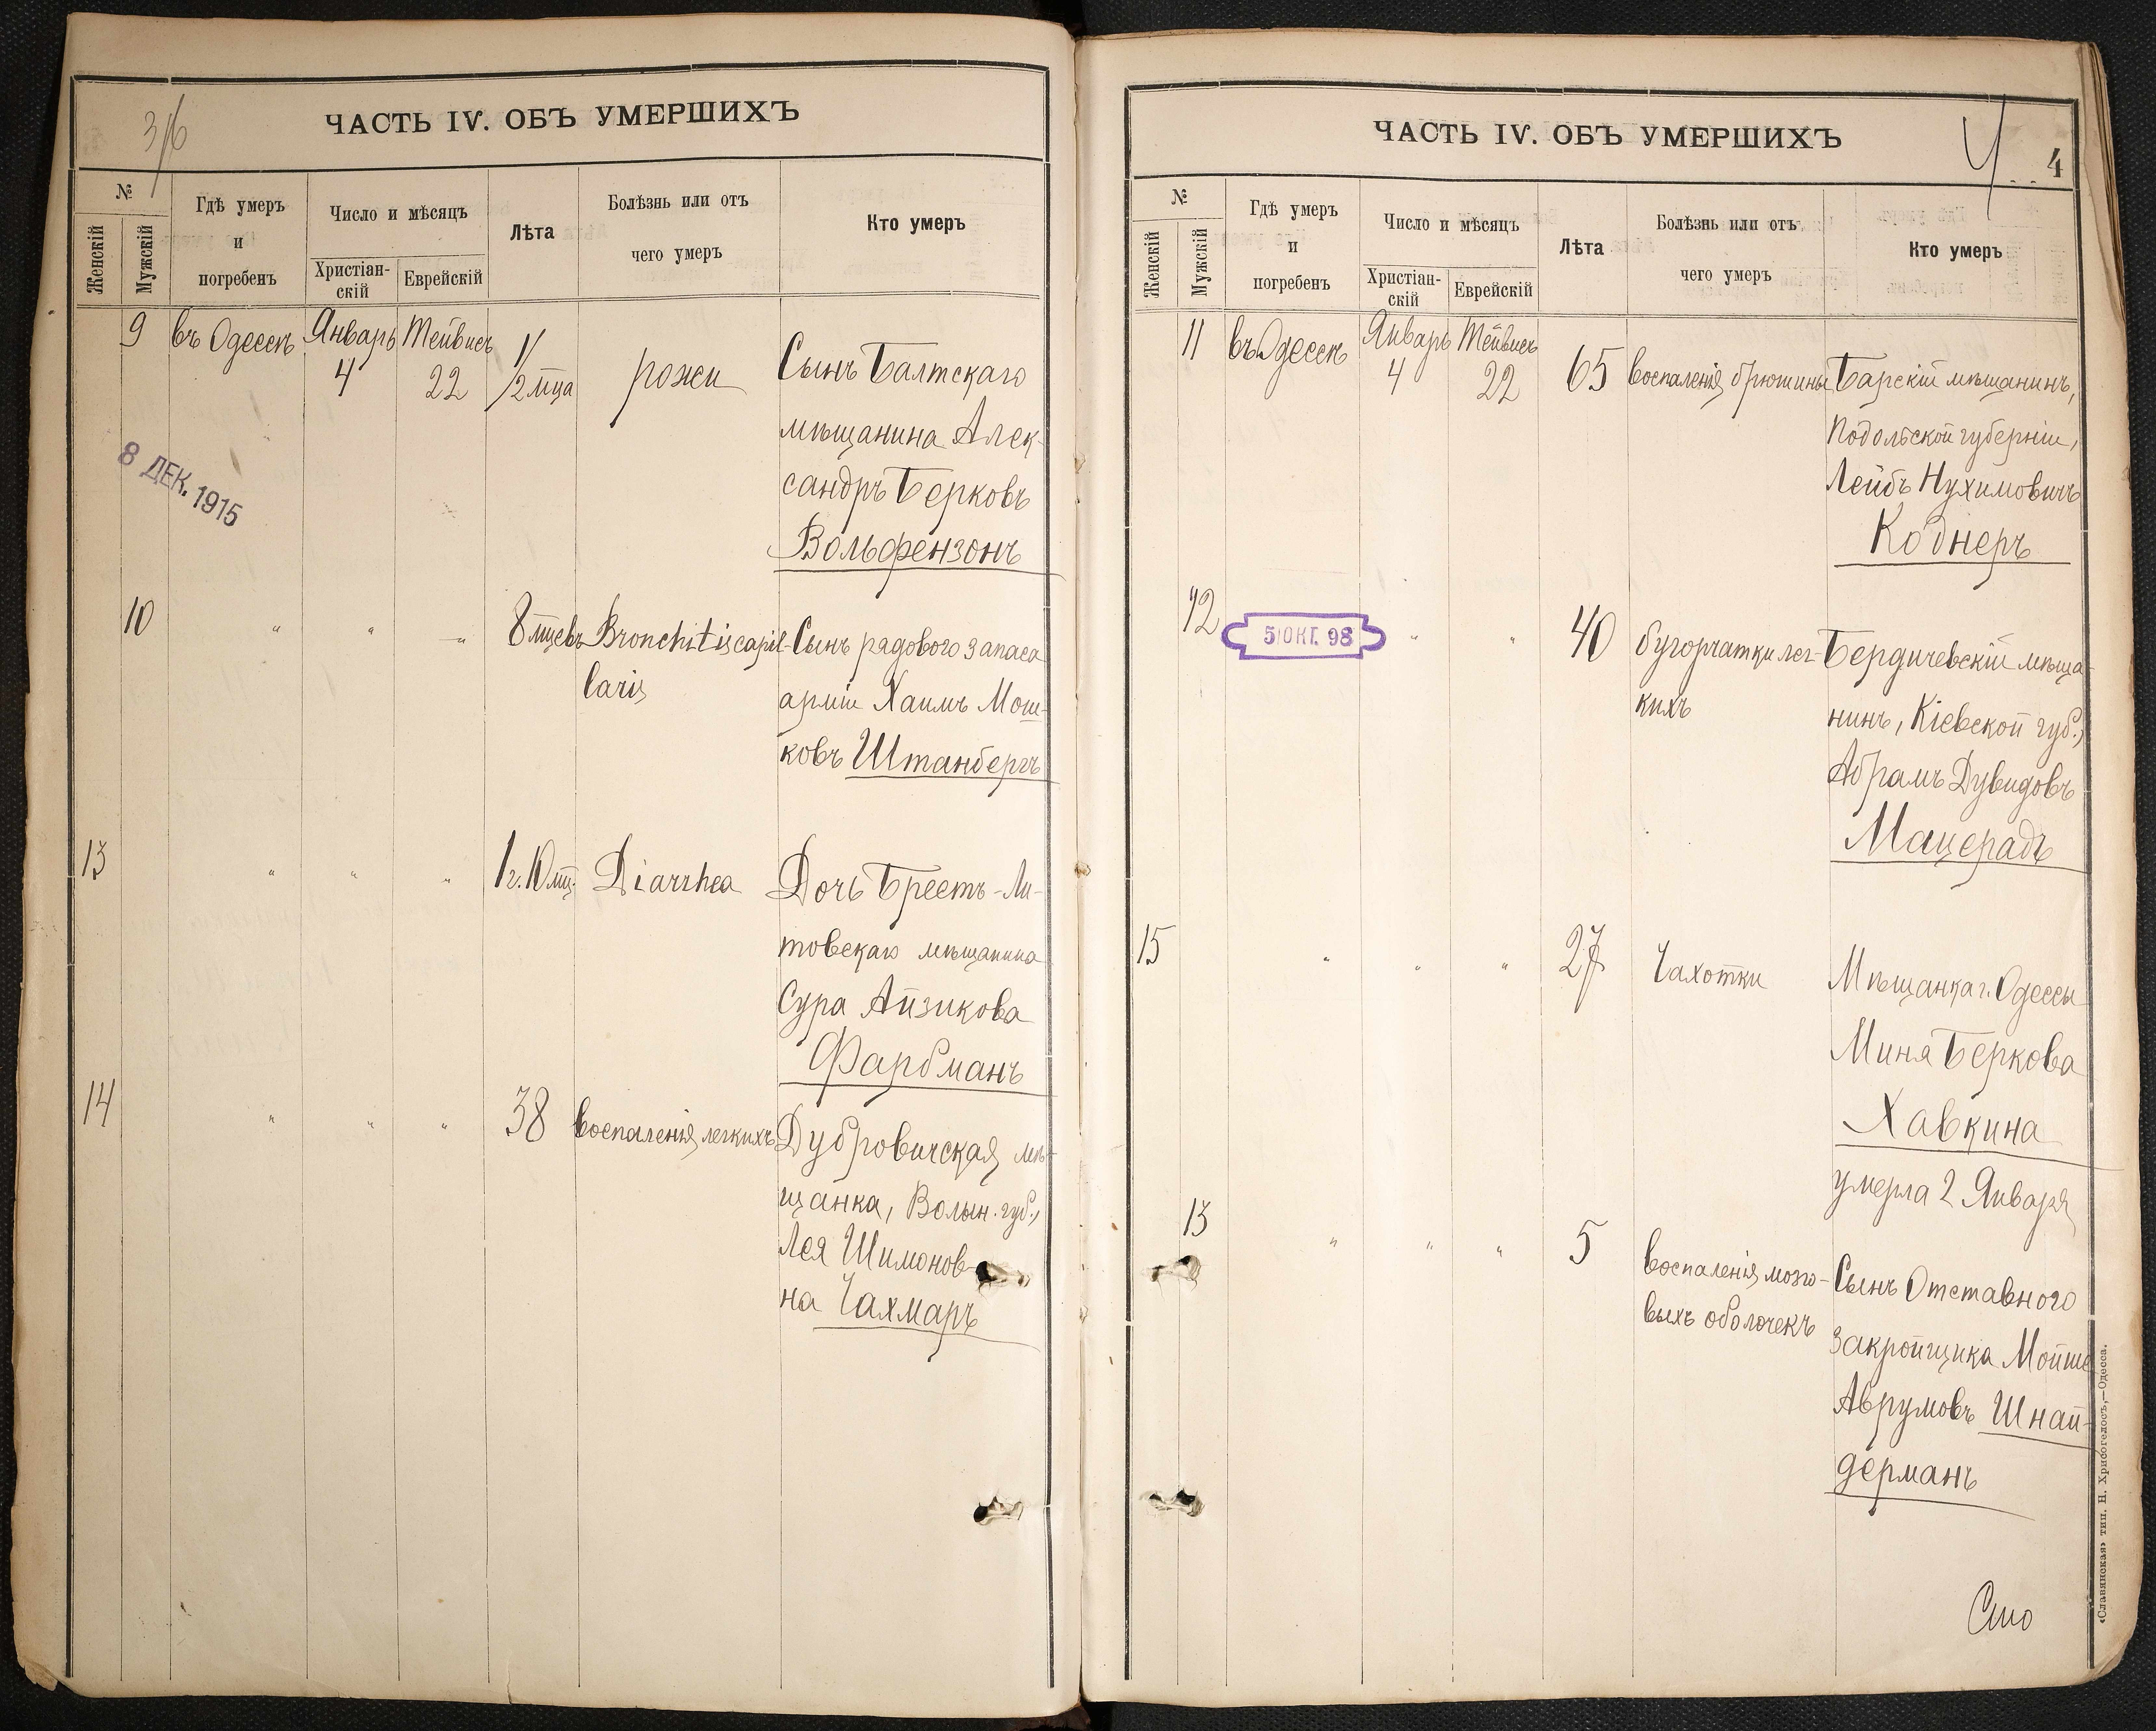 3/6
ЧАСТЬ IV. ОБЪ УМЕРШИХЪ
№
Женскій
Мужскій
Гдѣ умеръ
и
погребенъ
Число и мѣсяцъ
Христіан-
скій
Еврейскій
Лѣта
Болѣзнь или отъ
чего умеръ
Кто умеръ
9 въ Одессѣ Январь Тейвисъ 1/2 мца рожи Сынъ Балтскаго
4 22
мѣщанина Алек-
сандръ Берковъ
Вольфензонъ
8 ДЕК. 1915
10 " " " 8 мцевъ Bronchitis capil- Сынъ рядового запаса
laris арміи Хаимъ Мош-
ковъ Штанбергъ
13 " " " 1 г. 10 мц. Diarrhea Дочь Брестъ-Ли-
товскаго мѣщанина
Сура Айзикова
Фарбманъ
14 " " " 38 воспаленія легкихъ Дубровичская мѣ-
щанка, Волын. губ.,
Лея Шимонов-
на Чахмаръ
ЧАСТЬ IV. ОБЪ УМЕРШИХЪ
4
№
Женскій
Мужскій
Гдѣ умеръ
и
погребенъ
Число и мѣсяцъ
Христіан-
скій
Еврейскій
Лѣта
Болѣзнь или отъ
чего умеръ
Кто умеръ
11 въ Одессѣ Январь Тейвисъ 65 воспаленія брюшины Барскій мѣщанинъ,
4 22
Подольской губерніи,
Лейбъ Нухимовичъ
Коднеръ
12 5 ОКТ. 98 " " 40 бугорчатки лег- Бердичевскій мѣща-
кихъ нинъ, Кіевской губ.,
Абрамъ Дувидовъ
Мацерадъ
15 " " " 27 Чахотки Мѣщанка г. Одессы
Миня Беркова
Хавкина
умерла 2 Января
13 " " " 5 воспаленія мозго- Сынъ Отставного
выхъ оболочекъ закройщика Мойше
Аврумовъ Шнай-
дерманъ
«Славянская» тип. Н. Хрисогелосъ,—Одесса.